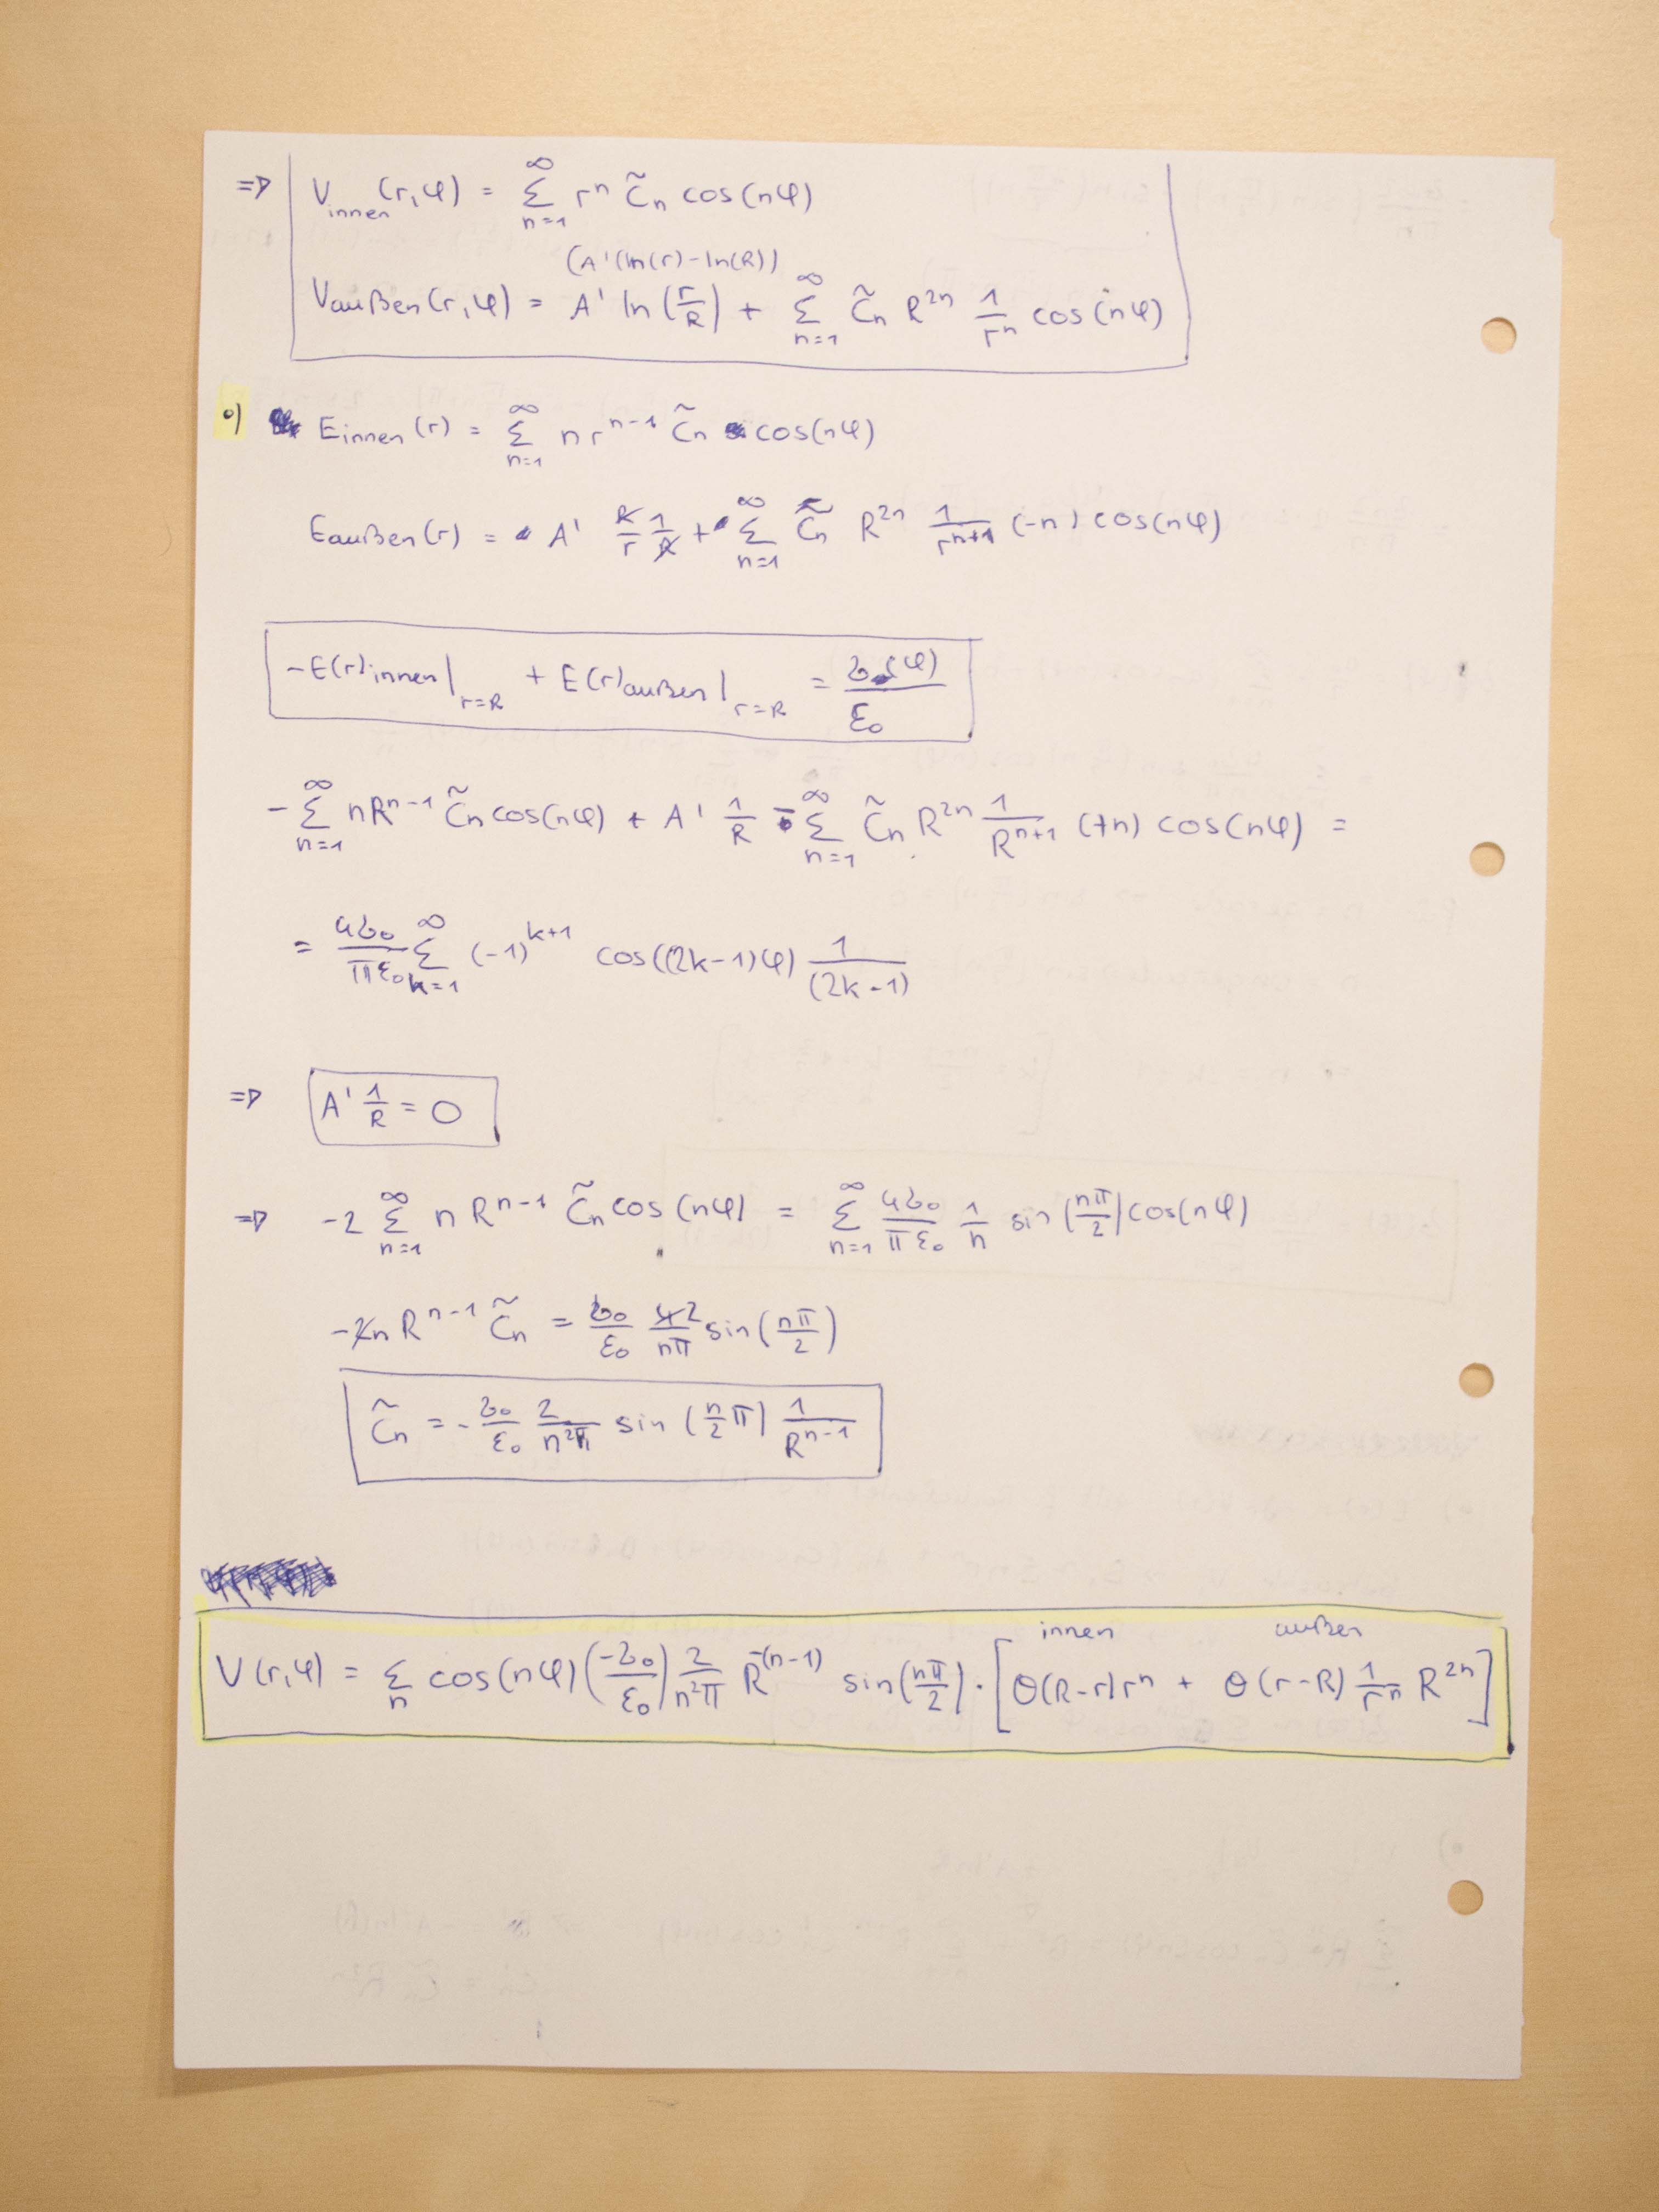 => V_innen(r,φ) = Σ_{n=1}^{∞} r^n C̃_n cos(nφ)
(A'(ln(r)-ln(R))
V_außen(r,φ) = A' ln(r/R) + Σ_{n=1}^{∞} C̃_n R^{2n} 1/r^n cos(nφ)
•) E_innen(r) = Σ_{n=1}^{∞} n r^{n-1} C̃_n cos(nφ)
E_außen(r) = A' R/r 1/R + Σ_{n=1}^{∞} C̃_n R^{2n} 1/r^{n+1} (-n) cos(nφ)
-E(r)_innen|_{r=R} + E(r)_außen|_{r=R} = σ(φ)/ε₀
- Σ_{n=1}^{∞} nR^{n-1} C̃_n cos(nφ) + A' 1/R - Σ_{n=1}^{∞} C̃_n R^{2n} 1/R^{n+1} (+n) cos(nφ) =
= 4σ₀/(πε₀) Σ_{k=1}^{∞} (-1)^{k+1} cos((2k-1)φ) 1/(2k-1)
=> A' 1/R = 0
=> -2 Σ_{n=1}^{∞} n R^{n-1} C̃_n cos(nφ) = Σ_{n=1}^{∞} 4σ₀/(πε₀) 1/n sin(nπ/2) cos(nφ)
-2n R^{n-1} C̃_n = σ₀/ε₀ 4 2/(nπ) sin(nπ/2)
C̃_n = - σ₀/ε₀ 2/(n²π) sin(n/2 π) 1/R^{n-1}
innen außen
V(r,φ) = Σ_n cos(nφ) (-σ₀/ε₀) 2/(n²π) R^{-(n-1)} sin(nπ/2) · [Θ(R-r) r^n + Θ(r-R) 1/r^n R^{2n}]